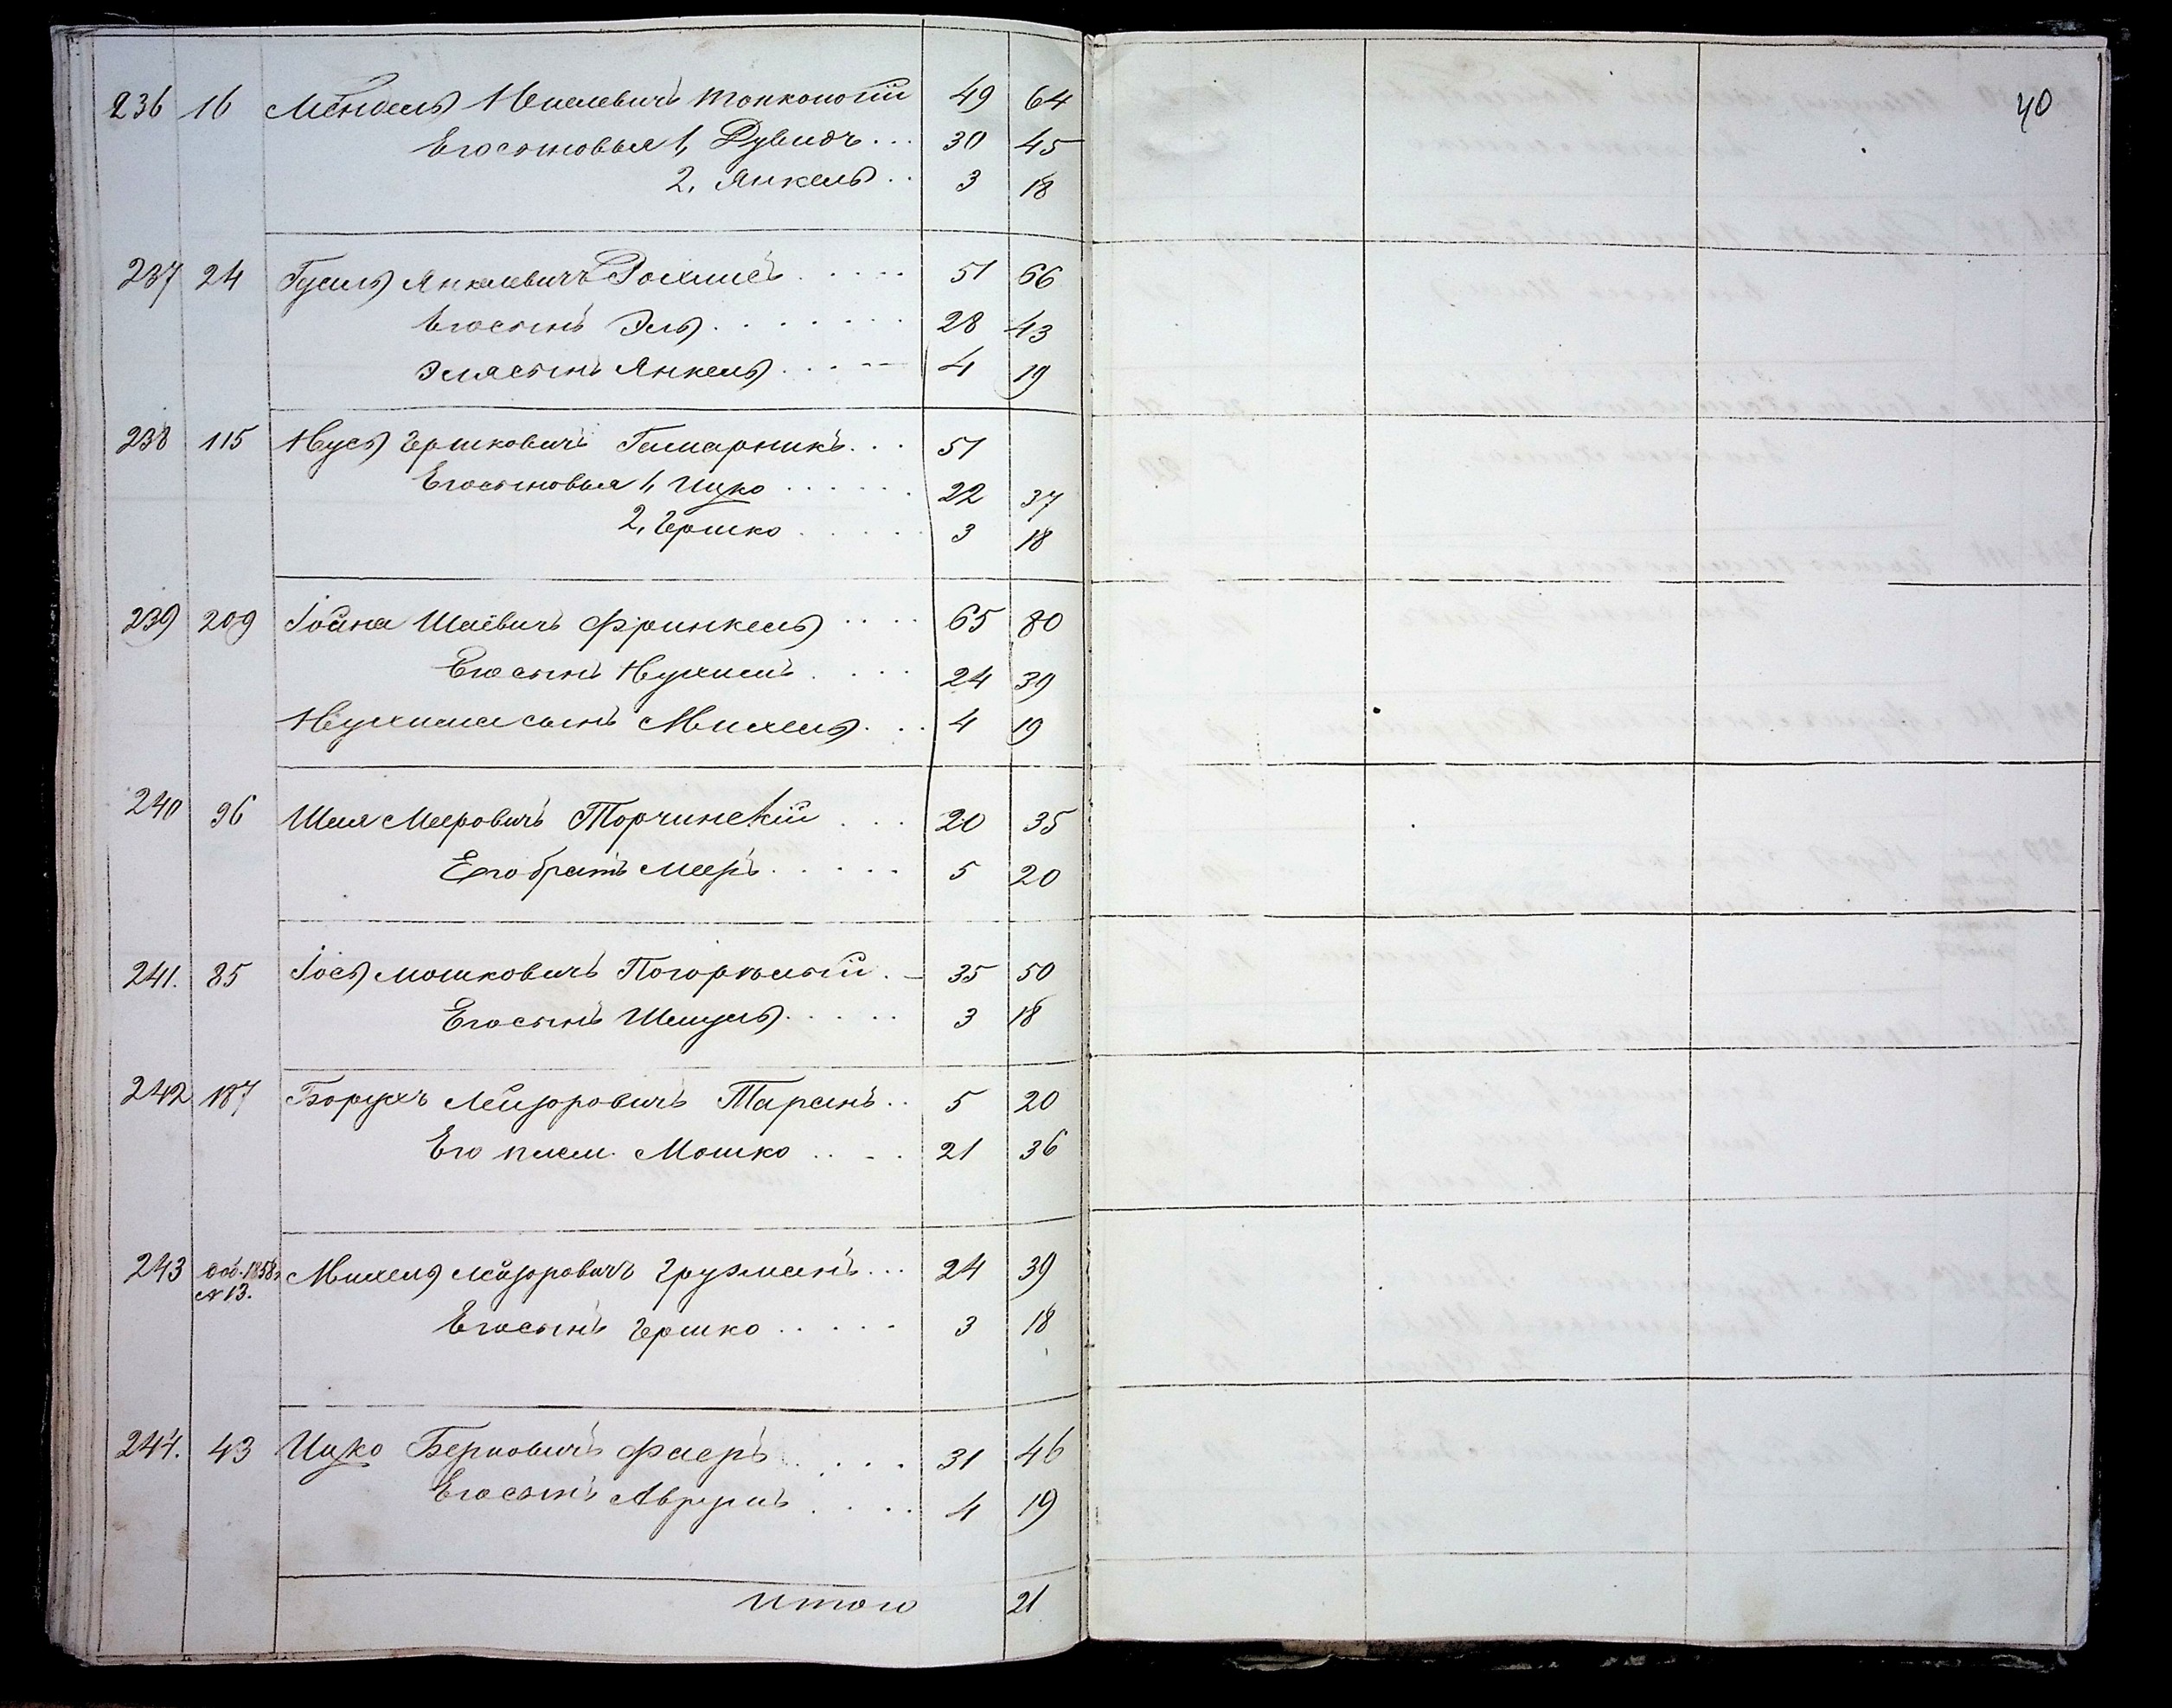 236 16 Мендель Нселевичъ Тонконогій 49 64
Его сыновья 1, Дувидъ... 30 45
2, Янкель.. 3 18
237 24 Гусиль Янкелевичъ Рохлисъ..... 51 66
Его сынъ Эль........ 28 43
Эля сынъ Янкель..... 4 19
238 115 Нусь Гершковичъ Гамарникъ... 51
Его сыновья 1, Ицко...... 22 37
2, Гершко..... 3 18
239 209 Іойна Шаёвичъ Френкель.... 65 80
Его сынъ Нухимъ.... 24 39
Нухима сынъ Михель... 4 19
240 96 Шая Мееровичъ Торчинскій... 20 35
Его братъ Мееръ..... 5 20
241. 85 Іось Мошковичъ Погорѣлый. 35 50
Его сынъ Шмуль..... 3 18
242 187 Борухъ Лейзоровичъ Таранъ.. 5 20
Его плем. Мошко.... 21 36
243 доб. 1858 Михель Лейзоровичъ Грузманъ... 24 39
№ 13.
Его сынъ Гершко..... 3 18
244. 43 Ицко Берковичъ Фаеръ.... 31 46
Его сынъ Аврумъ.... 4 19
Итого 21
40